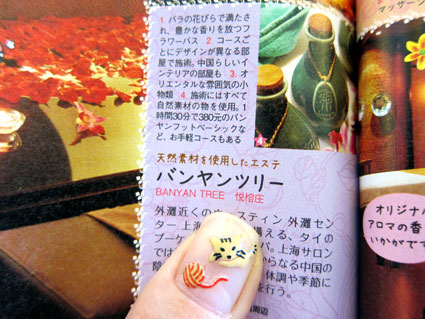 マッサージ
1 バラの花びらで満たさ
れ、豊かな香りを放つフ
ラワーバス 2 コースご
とにデザインが異なる部
屋で施術。中国らしいイ
ンテリアの部屋も 3 オ
リエンタルな雰囲気の小
物類 4 施術にはすべて
自然素材の物を使用。1
時間30分で380元のバン
ヤンフットベーシックな
ど、お手軽コースもある
天然素材を使用したエステ
バンヤンツリー
BANYAN TREE 悦榕庄
外灘近くのウェスティン 外灘セン
ター 上海 構える、タイの
プーケ パ。上海サロン
では らなる中国の
陰 体調や季節に
を行う。
周辺
オリジナル
アロマの香
いかがです